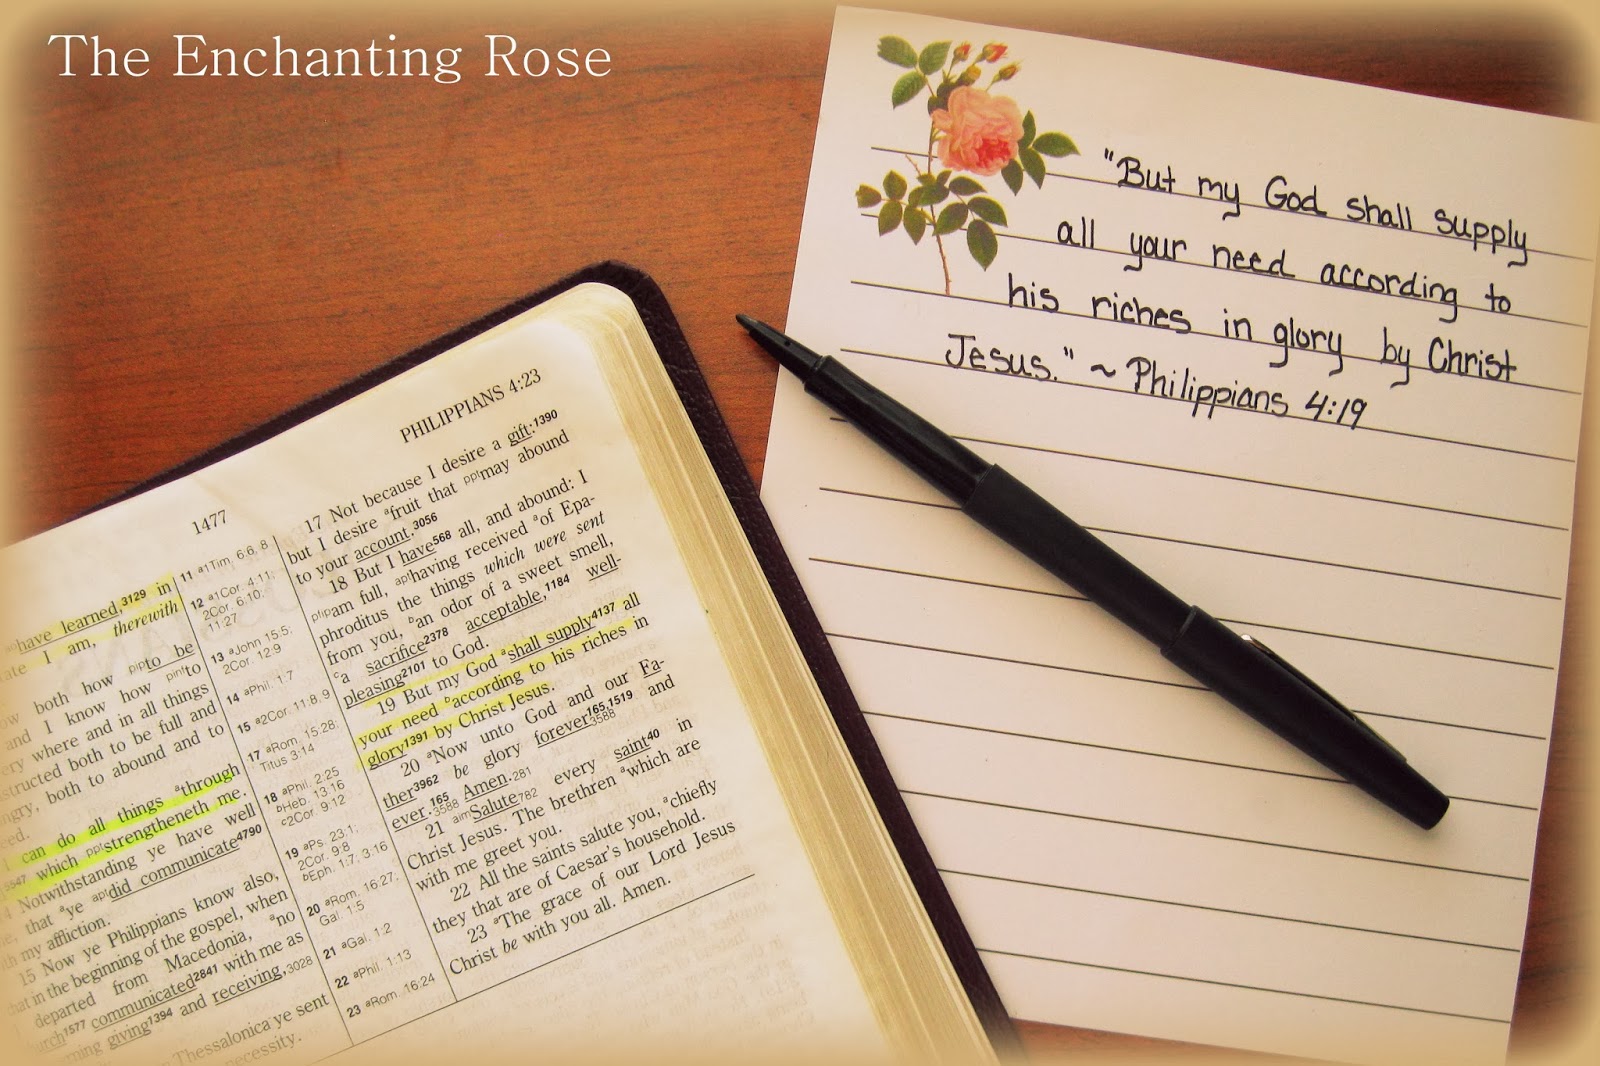 The Enchanting Rose
"But my God shall supply
all your need according to
his riches in glory by Christ
Jesus." ~ Philippians 4:19
1477
PHILIPPIANS 4:23
have learned,3129 in
I am, therewith
both how pinto be
and I know how pinto
where and in all things
structed both to be full and
both to abound and to
can do all things athrough
which pptstrengtheneth me.
Notwithstanding ye have well
that aye aptdid communicate4790
my affliction.
15 Now ye Philippians know also,
that in the beginning of the gospel, when
departed from Macedonia, ano
1577 communicated2841 with me as
giving1394 and receiving,3028
Thessalonica ye sent
necessity.
11 a1Tim. 6:6, 8
12 a1Cor. 4:11;
2Cor. 6:10;
11:27
13 aJohn 15:5;
2Cor. 12:9
14 aPhil. 1:7
15 a2Cor. 11:8, 9
17 aRom. 15:28;
Titus 3:14
18 aPhil. 2:25
bHeb. 13:16
c2Cor. 9:12
19 aPs. 23:1;
2Cor. 9:8
bEph. 1:7; 3:16
20 aRom. 16:27;
Gal. 1:5
21 aGal. 1:2
22 aPhil. 1:13
23 aRom. 16:24
17 Not because I desire a gift:1390
but I desire afruit that pptmay abound
to your account.3056
18 But I have568 all, and abound: I
pfipam full, apthaving received aof Epa-
phroditus the things which were sent
from you, ban odor of a sweet smell,
ca sacrifice2378 acceptable,1184 well-
pleasing2101 to God.
19 But my God ashall supply4137 all
your need baccording to his riches in
glory1391 by Christ Jesus.
20 aNow unto God and our Fa-
ther3962 be glory forever165,1519 and
ever.165 3588 Amen.281
21 aimSalute782 every saint40 in
Christ Jesus. The brethren awhich are
with me greet you.
22 All the saints salute you, achiefly
they that are of Caesar's household.
23 aThe grace of our Lord Jesus
Christ be with you all. Amen.